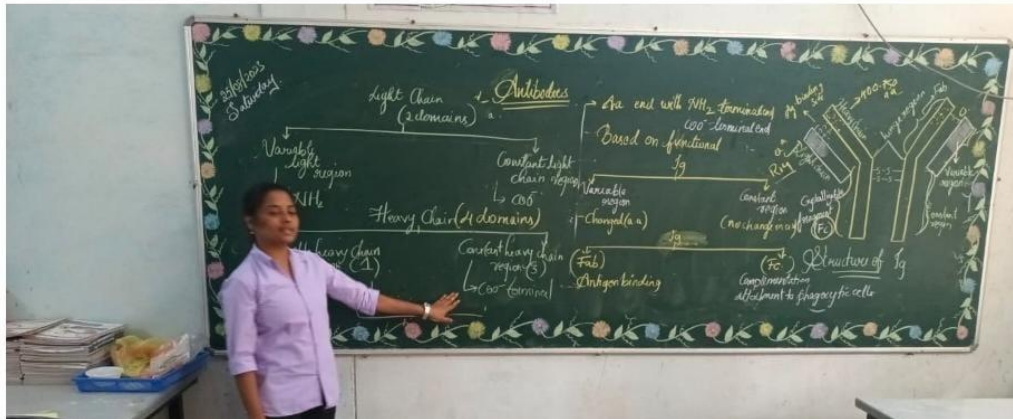 25/03/2023
Saturday.
Antibodies
Light Chain
(2 domains)
Variable
light
region
NH2
Constant light
chain region
COO-
Heavy Chain (4 domains)
heavy chain
(1)
Constant heavy chain
region (3)
COO- terminal
Aa end with NH2 terminating
COO- terminal end
Based on functional
Ig
Variable
region
Changed (a.a)
Constant
region
(no change in aa)
Ig
(Fab)
Antigen binding
(Fc)
Complementation
attachment to phagocytic cells
binding
site
Hinge region
Fab
S-S
S-S
Variable
region
constant
region
Crystallizable
fragment
(Fc)
Structure of Ig